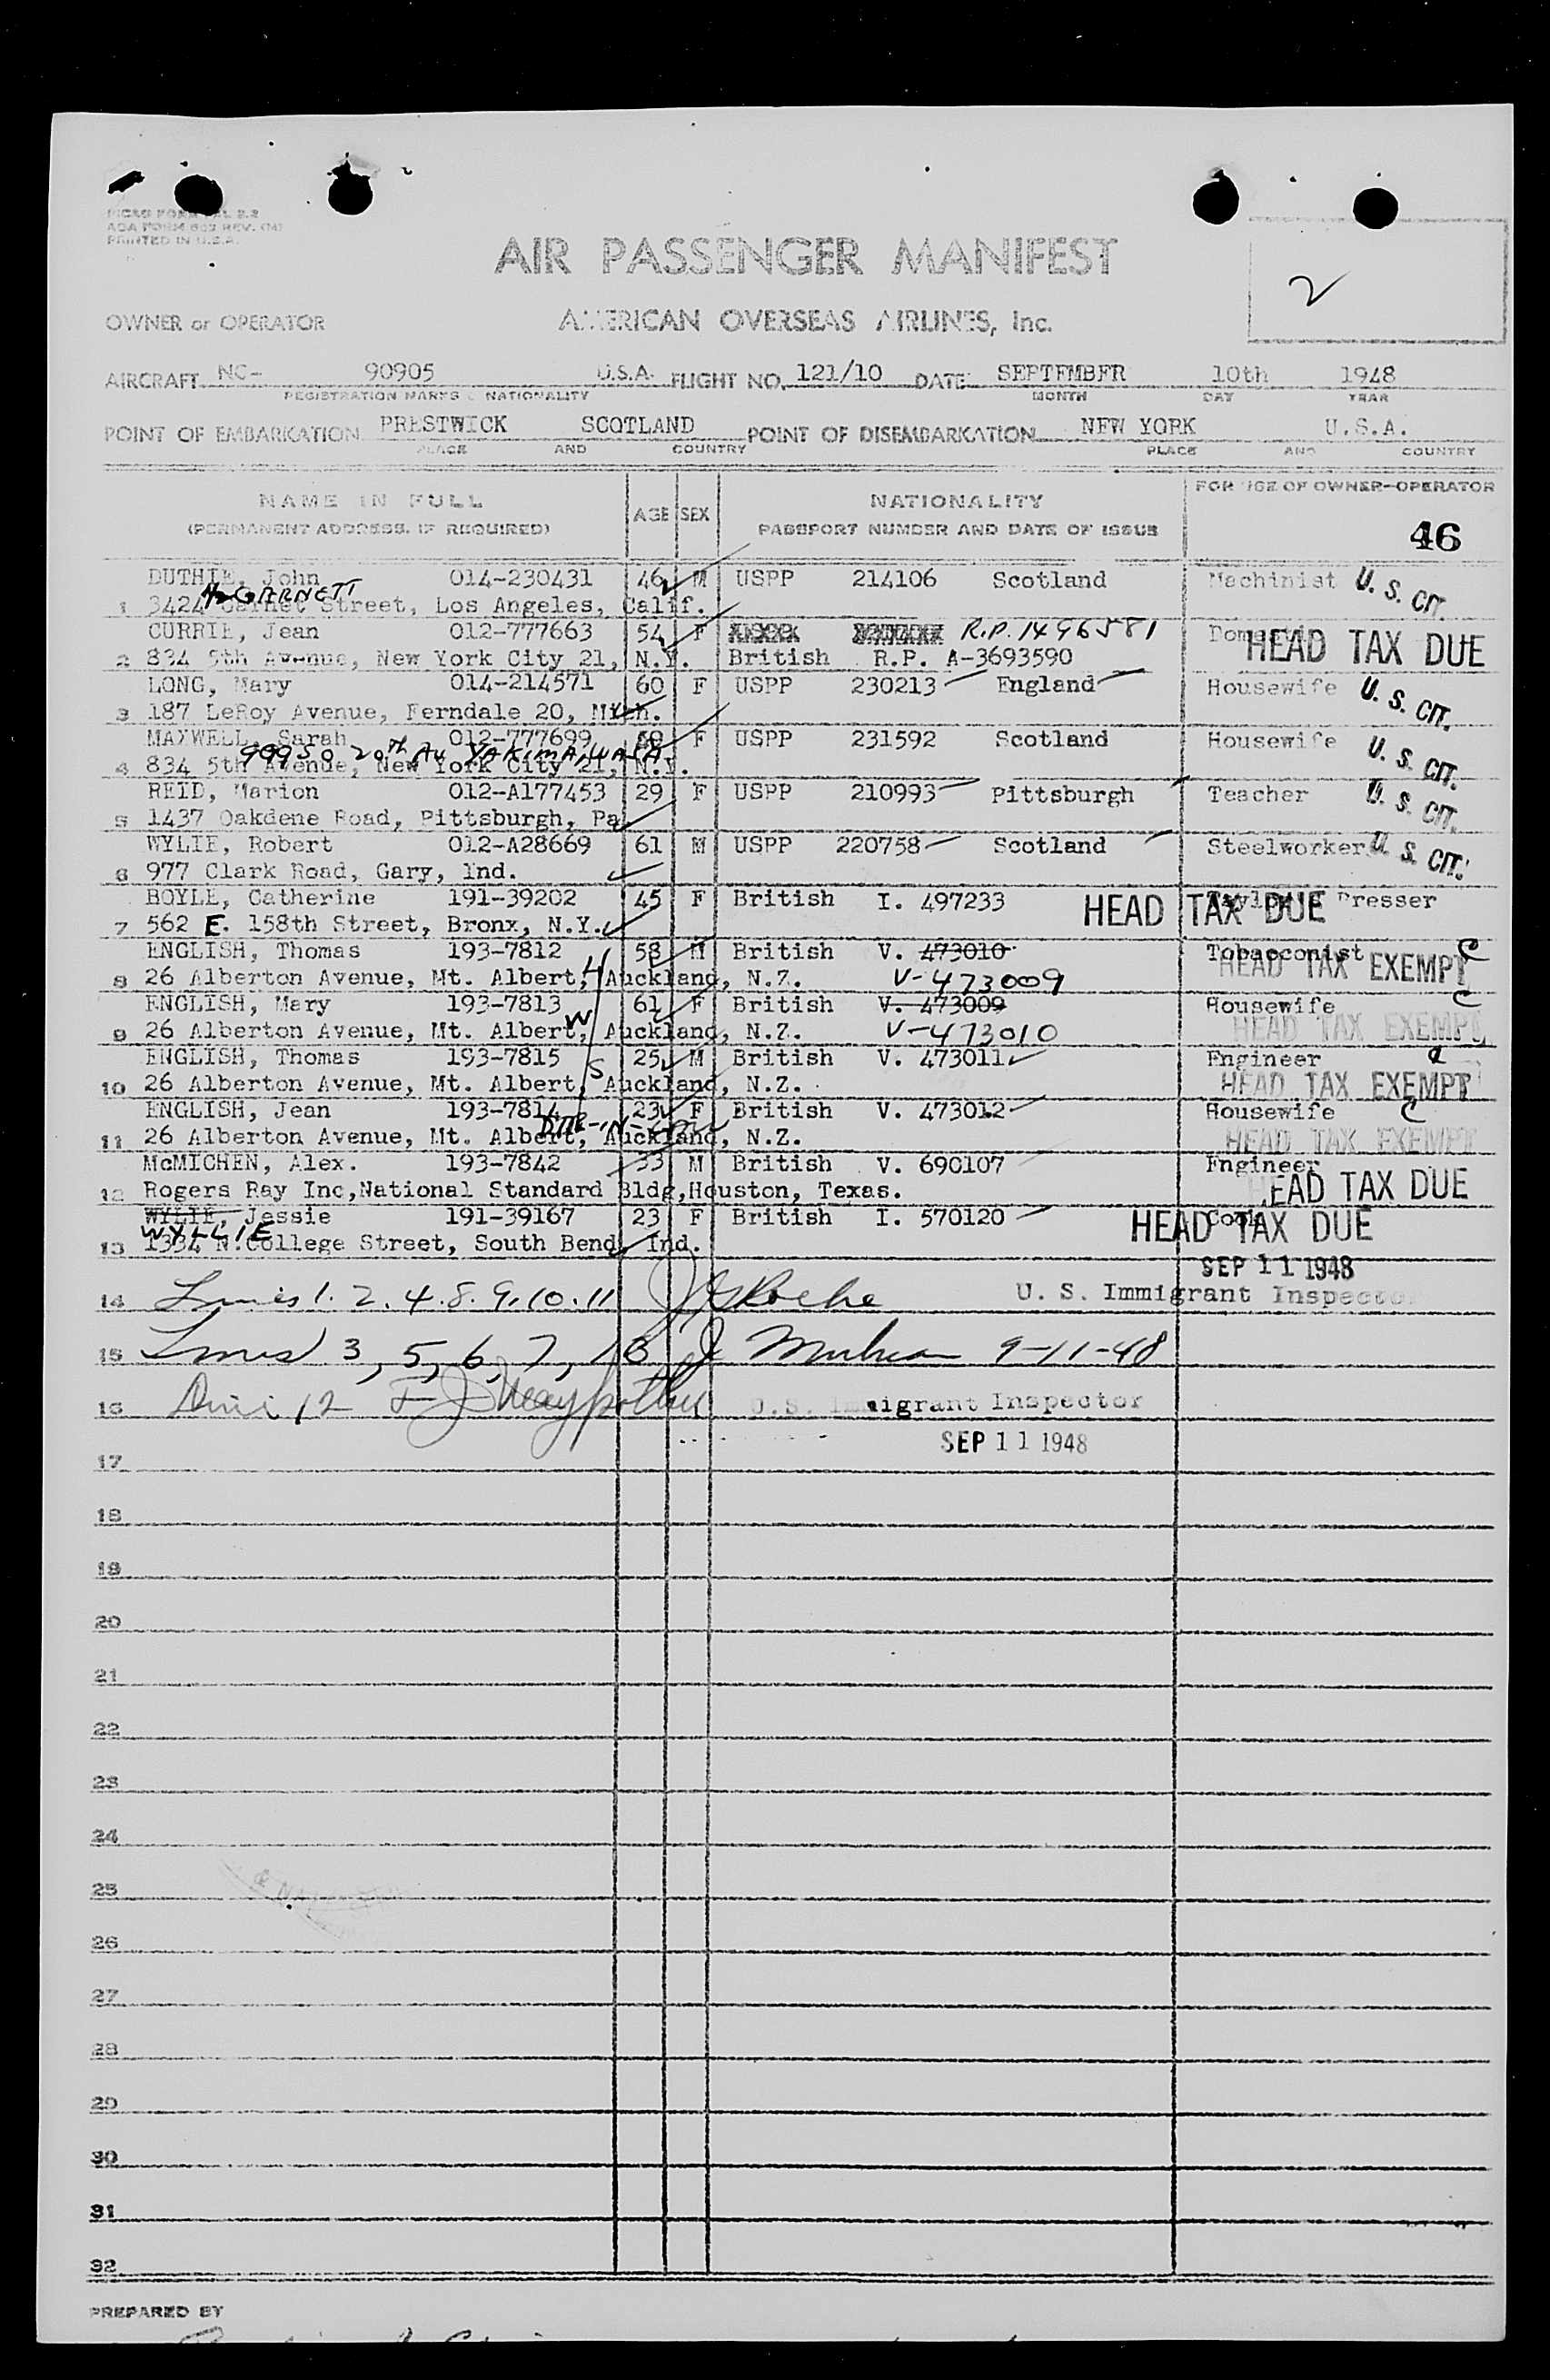 PRINTED IN U.S.A.
AIR PASSENGER MANIFEST
2
OWNER or OPERATOR AMERICAN OVERSEAS AIRLINES, Inc.
AIRCRAFT NC- 90905 U.S.A. FLIGHT NO. 121/10 DATE SEPTEMBER 10th 1948
REGISTRATION MARKS & NATIONALITY MONTH DAY YEAR
POINT OF EMBARKATION PRESTWICK SCOTLAND POINT OF DISEMBARKATION NEW YORK U.S.A.
PLACE AND COUNTRY PLACE AND COUNTRY
NAME IN FULL AGE SEX NATIONALITY FOR USE OF OWNER-OPERATOR
(PERMANENT ADDRESS, IF REQUIRED) PASSPORT NUMBER AND DATE OF ISSUE
46
DUTHIE, John 014-230431 46 M USPP 214106 Scotland Machinist U. S. CIT.
GARNETT
1 3424 Garnet Street, Los Angeles, Calif.
CURRIE, Jean 012-777663 54 F R.P. 1496581 HEAD TAX DUE
2 834 5th Avenue, New York City 21, N.Y. British R.P. A-3693590
LONG, Mary 014-214571 60 F USPP 230213 England Housewife U. S. CIT.
3 187 LeRoy Avenue, Ferndale 20, Mich.
MAXWELL, Sarah 012-777699 F USPP 231592 Scotland Housewife U. S. CIT.
909 So 20th Av YAKIMA, WASH
4 834 5th Avenue, New York City 21, N.Y.
REID, Marion 012-A177453 29 F USPP 210993 Pittsburgh Teacher U. S. CIT.
5 1437 Oakdene Road, Pittsburgh, Pa.
WYLIE, Robert 012-A28669 61 M USPP 220758 Scotland Steelworker U. S. CIT.
6 977 Clark Road, Gary, Ind.
BOYLE, Catherine 191-39202 45 F British I. 497233 HEAD TAX DUE Presser
7 562 E. 158th Street, Bronx, N.Y.
ENGLISH, Thomas 193-7812 58 M British V. 473010 Tobacconist C
H
8 26 Alberton Avenue, Mt. Albert, Auckland, N.Z. V-473009 HEAD TAX EXEMPT
ENGLISH, Mary 193-7813 61 F British V. 473009 Housewife C
W
9 26 Alberton Avenue, Mt. Albert, Auckland, N.Z. V-473010 HEAD TAX EXEMPT
ENGLISH, Thomas 193-7815 25 M British V. 473011 Engineer C
S
10 26 Alberton Avenue, Mt. Albert, Auckland, N.Z. HEAD TAX EXEMPT
ENGLISH, Jean 193-7814 23 F British V. 473012 Housewife C
DTR-IN-LAW
11 26 Alberton Avenue, Mt. Albert, Auckland, N.Z. HEAD TAX EXEMPT
McMICHEN, Alex. 193-7842 33 M British V. 690107 Engineer
12 Rogers Ray Inc,National Standard Bldg,Houston, Texas. HEAD TAX DUE
WYLIE, Jessie 191-39167 23 F British I. 570120 Cook HEAD TAX DUE
WYLLIE
13 1334 N.College Street, South Bend, Ind.
SEP 11 1948
14 Lines 1. 2. 4. 8. 9. 10. 11 U. S. Immigrant Inspector
15 Lines 3, 5, 6, 7, 13 9-11-48
16 Line 12 U.S. Immigrant Inspector
SEP 11 1948
17
18
19
20
21
22
23
24
25
26
27
28
29
30
31
32
PREPARED BY